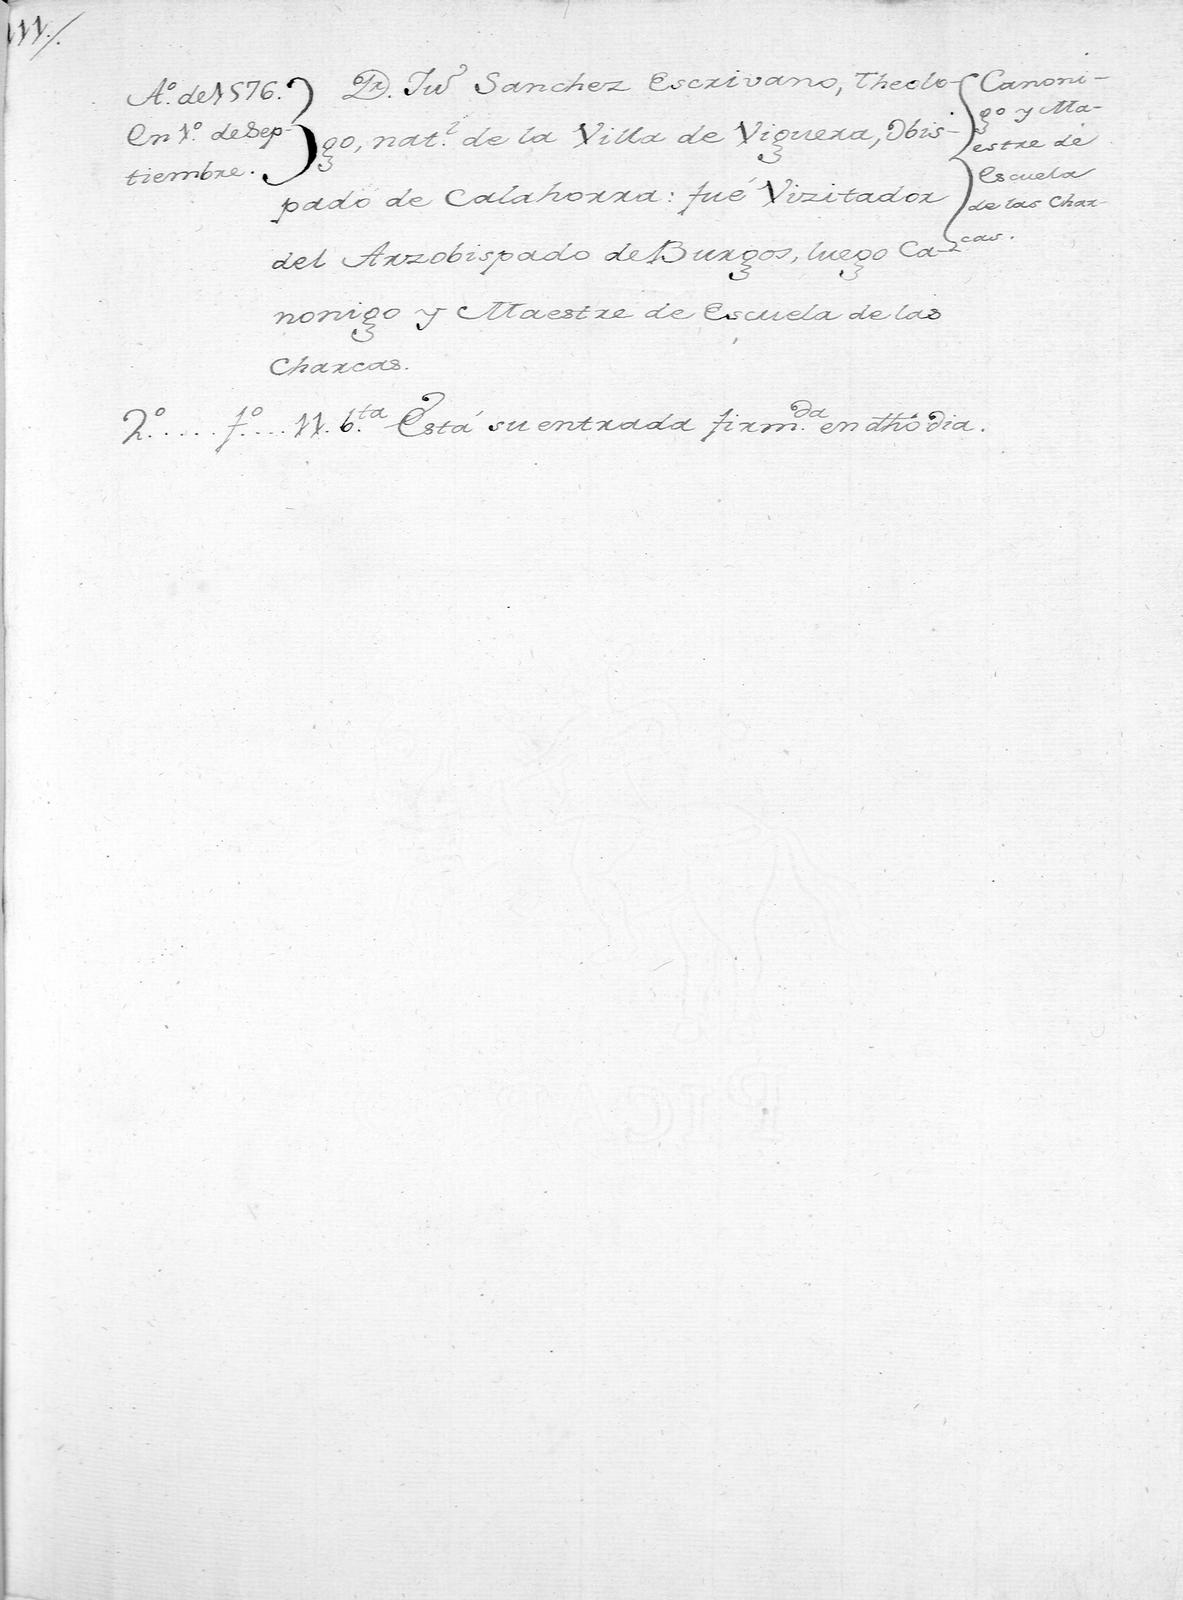 111./.
Aº. de 1576.
En 1º. de Sep-
tiembre.
Dr. Juº Sanchez Escrivano, Theolo-
go, nat.l de la Villa de Viguera, Obis-
pado de Calahorra: fué Vizitador
del Arzobispado de Burgos, luego Ca-
nonigo y Maestre de Escuela de las
Charcas.
Canoni-
go y Ma-
estre de
Escuela
de las Char-
cas.
2º. .... fº. ... 11. b.ta Está su entrada firm.da en dhô dia.